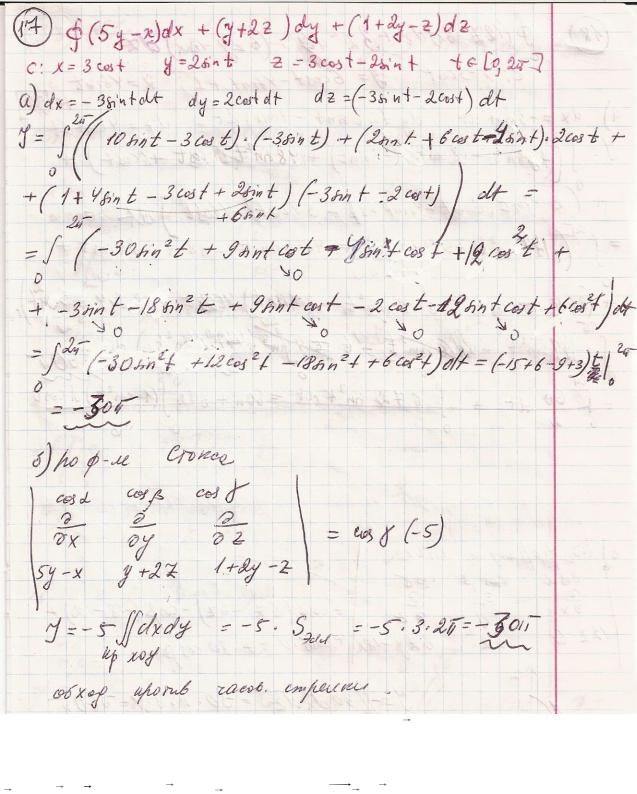 17 ∮(5y-x)dx + (y+2z)dy + (1+2y-z)dz
C: x = 3cost y = 2sint z = 3cost-2sint t∈[0,2π]
а) dx = -3sint dt dy = 2cost dt dz = (-3sint-2cost) dt
J = ∫₀^2π ((10sint - 3cost)·(-3sint) + (2sint + 6cost - 4sint)·2cost +
+ (1 + 4sint - 3cost + 2sint) (-3sint - 2cost)) dt =
+6sint
= ∫₀^2π (-30sin²t + 9sint cost - 4sint cost + 12cos²t +
→0
+ -3sint - 18sin²t + 9sint cost - 2cost - 12sint cost + 6cos²t) dt
→0 →0 →0 →0
= ∫₀^2π (-30sin²t + 12cos²t - 18sin²t + 6cos²t) dt = (-15+6-9+3) t |₀^2π
= -30π
б) по ф-ле Стокса
| cosα cosβ cosγ |
∂/∂x ∂/∂y ∂/∂z = cosγ (-5)
5y-x y+2z 1+2y-z
J = -5 ∬dxdy = -5 · Sэлл = -5·3·2π = -30π
пр xoy
обход против часов. стрелки.